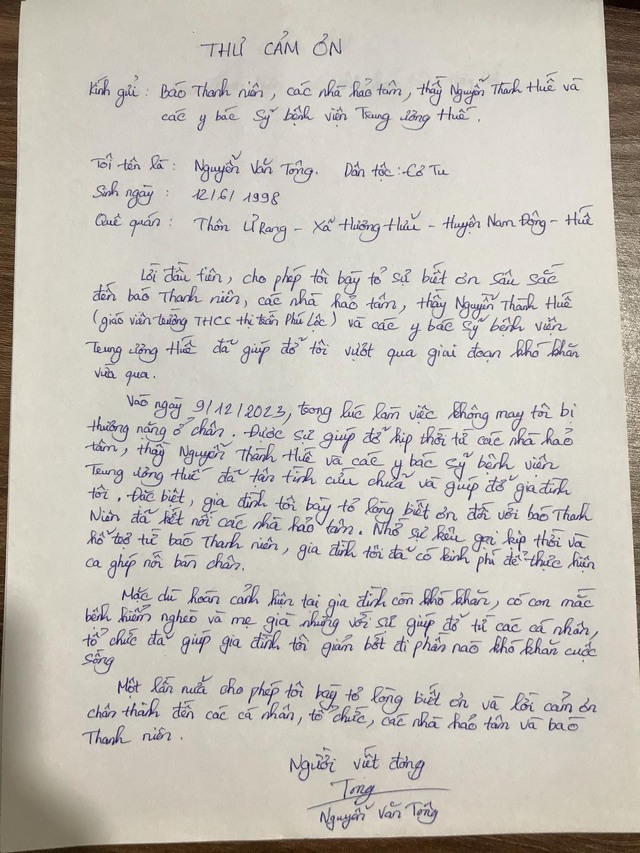 THƯ CẢM ƠN
Kính gửi : Báo Thanh niên, các nhà hảo tâm, thầy Nguyễn Thanh Huế và
các y bác sỹ bệnh viện Trung ương Huế.
Tôi tên là : Nguyễn Văn Tông. Dân tộc : Cơ Tu
Sinh ngày : 12/6/1998
Quê quán : Thôn Ư Rang - Xã Hương Hữu - Huyện Nam Đông - Huế
Lời đầu tiên, cho phép tôi bày tỏ sự biết ơn sâu sắc
đến báo Thanh niên, các nhà hảo tâm, thầy Nguyễn Thanh Huế
(giáo viên trường THCS thị trấn Phú Lộc) và các y bác sỹ bệnh viện
Trung ương Huế đã giúp đỡ tôi vượt qua giai đoạn khó khăn
vừa qua.
Vào ngày 9/12/2023, trong lúc làm việc không may tôi bị
thương nặng ở chân. Được sự giúp đỡ kịp thời từ các nhà hảo
tâm, thầy Nguyễn Thanh Huế và các y bác sỹ bệnh viện
Trung ương Huế đã tận tình cứu chữa và giúp đỡ gia đình
tôi. Đặc biệt, gia đình tôi bày tỏ lòng biết ơn đối với báo Thanh
Niên đã kết nối các nhà hảo tâm. Nhờ sự kêu gọi kịp thời và
hỗ trợ từ báo Thanh niên, gia đình tôi đã có kinh phí để thực hiện
ca ghép nối bàn chân.
Mặc dù hoàn cảnh hiện tại gia đình còn khó khăn, có con mắc
bệnh hiểm nghèo và mẹ già nhưng với sự giúp đỡ từ các cá nhân,
tổ chức đã giúp gia đình tôi giảm bớt đi phần nào khó khăn cuộc
sống
Một lần nữa cho phép tôi bày tỏ lòng biết ơn và lời cảm ơn
chân thành đến các cá nhân, tổ chức, các nhà hảo tâm và báo
Thanh niên.
Người viết đơn
Tông
Nguyễn Văn Tông